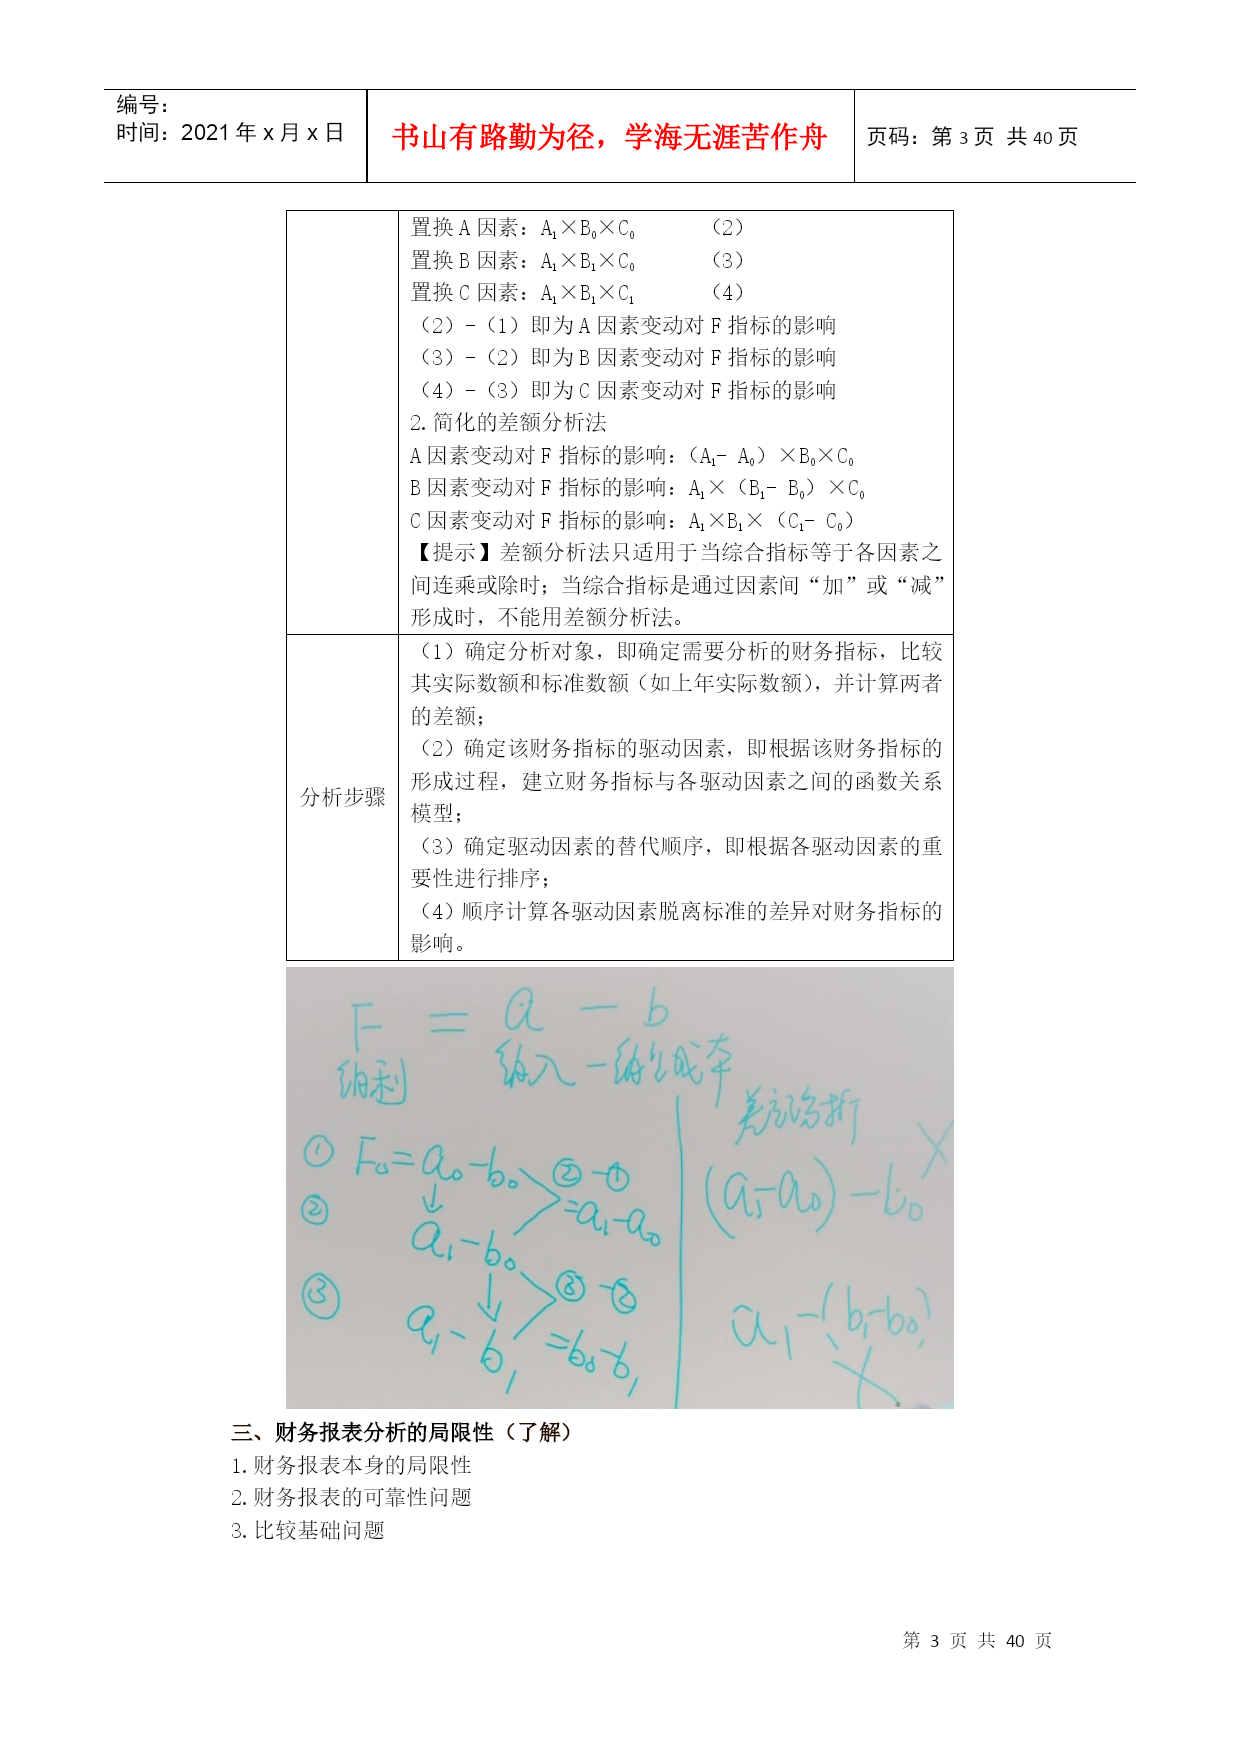 编号：
时间：2021年x月x日
书山有路勤为径，学海无涯苦作舟
页码：第3页 共40页
置换A因素：A₁×B₀×C₀ （2）
置换B因素：A₁×B₁×C₀ （3）
置换C因素：A₁×B₁×C₁ （4）
（2）-（1）即为A因素变动对F指标的影响
（3）-（2）即为B因素变动对F指标的影响
（4）-（3）即为C因素变动对F指标的影响
2.简化的差额分析法
A因素变动对F指标的影响：（A₁- A₀）×B₀×C₀
B因素变动对F指标的影响：A₁×（B₁- B₀）×C₀
C因素变动对F指标的影响：A₁×B₁×（C₁- C₀）
【提示】差额分析法只适用于当综合指标等于各因素之
间连乘或除时；当综合指标是通过因素间“加”或“减”
形成时，不能用差额分析法。
分析步骤
（1）确定分析对象，即确定需要分析的财务指标，比较
其实际数额和标准数额（如上年实际数额），并计算两者
的差额；
（2）确定该财务指标的驱动因素，即根据该财务指标的
形成过程，建立财务指标与各驱动因素之间的函数关系
模型；
（3）确定驱动因素的替代顺序，即根据各驱动因素的重
要性进行排序；
（4）顺序计算各驱动因素脱离标准的差异对财务指标的
影响。
F = a - b
① F₀=a₀-b₀ ②-①
=a₁-a₀
② a₁-b₀
③ a₁-b₁ ③-②
=b₀-b₁
差额分析
(a₁-a₀)-b₀ X
a₁-(b₁-b₀) X
三、财务报表分析的局限性（了解）
1.财务报表本身的局限性
2.财务报表的可靠性问题
3.比较基础问题
第 3 页 共 40 页